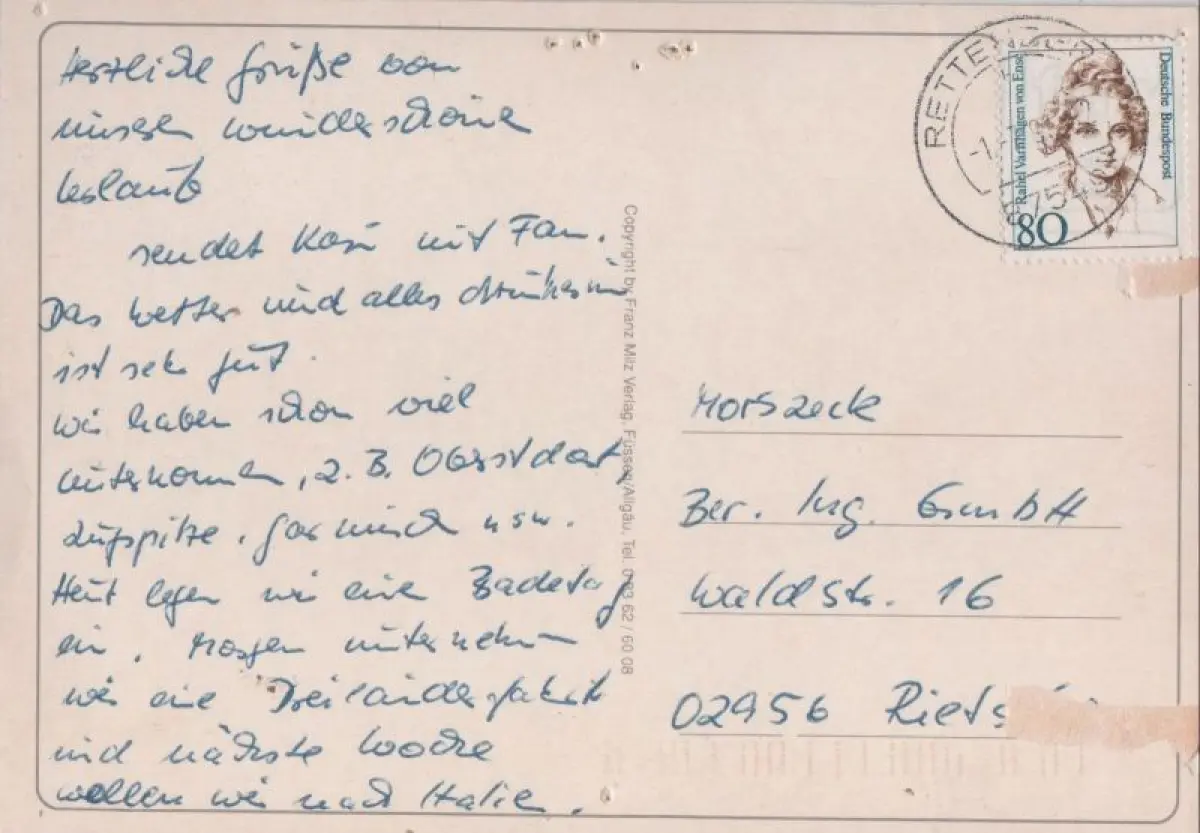 Herzliche Grüße von
unseren wunderschöne
Urlaub
sendet Kasi mit Fam.
Das Wetter und alles drumherum
ist sehr gut.
Wir haben schon viel
unternommen, z.B. Oberstdorf,
Zugspitze, Garmisch usw.
Heut legen wir eine Badetag
ein. Morgen unternehmen
wir eine Dreiländerfahrt
und nächste Woche
wollen wir nach Italien.
Copyright by Franz Milz Verlag, Füssen/Allgäu, Tel. 0 83 62 / 60 08
RETTENBERG
87549
Rahel Varnhagen von Ense
Deutsche Bundespost
80
Morszeck
Ber. Ing. GmbH
Waldstr. 16
02956